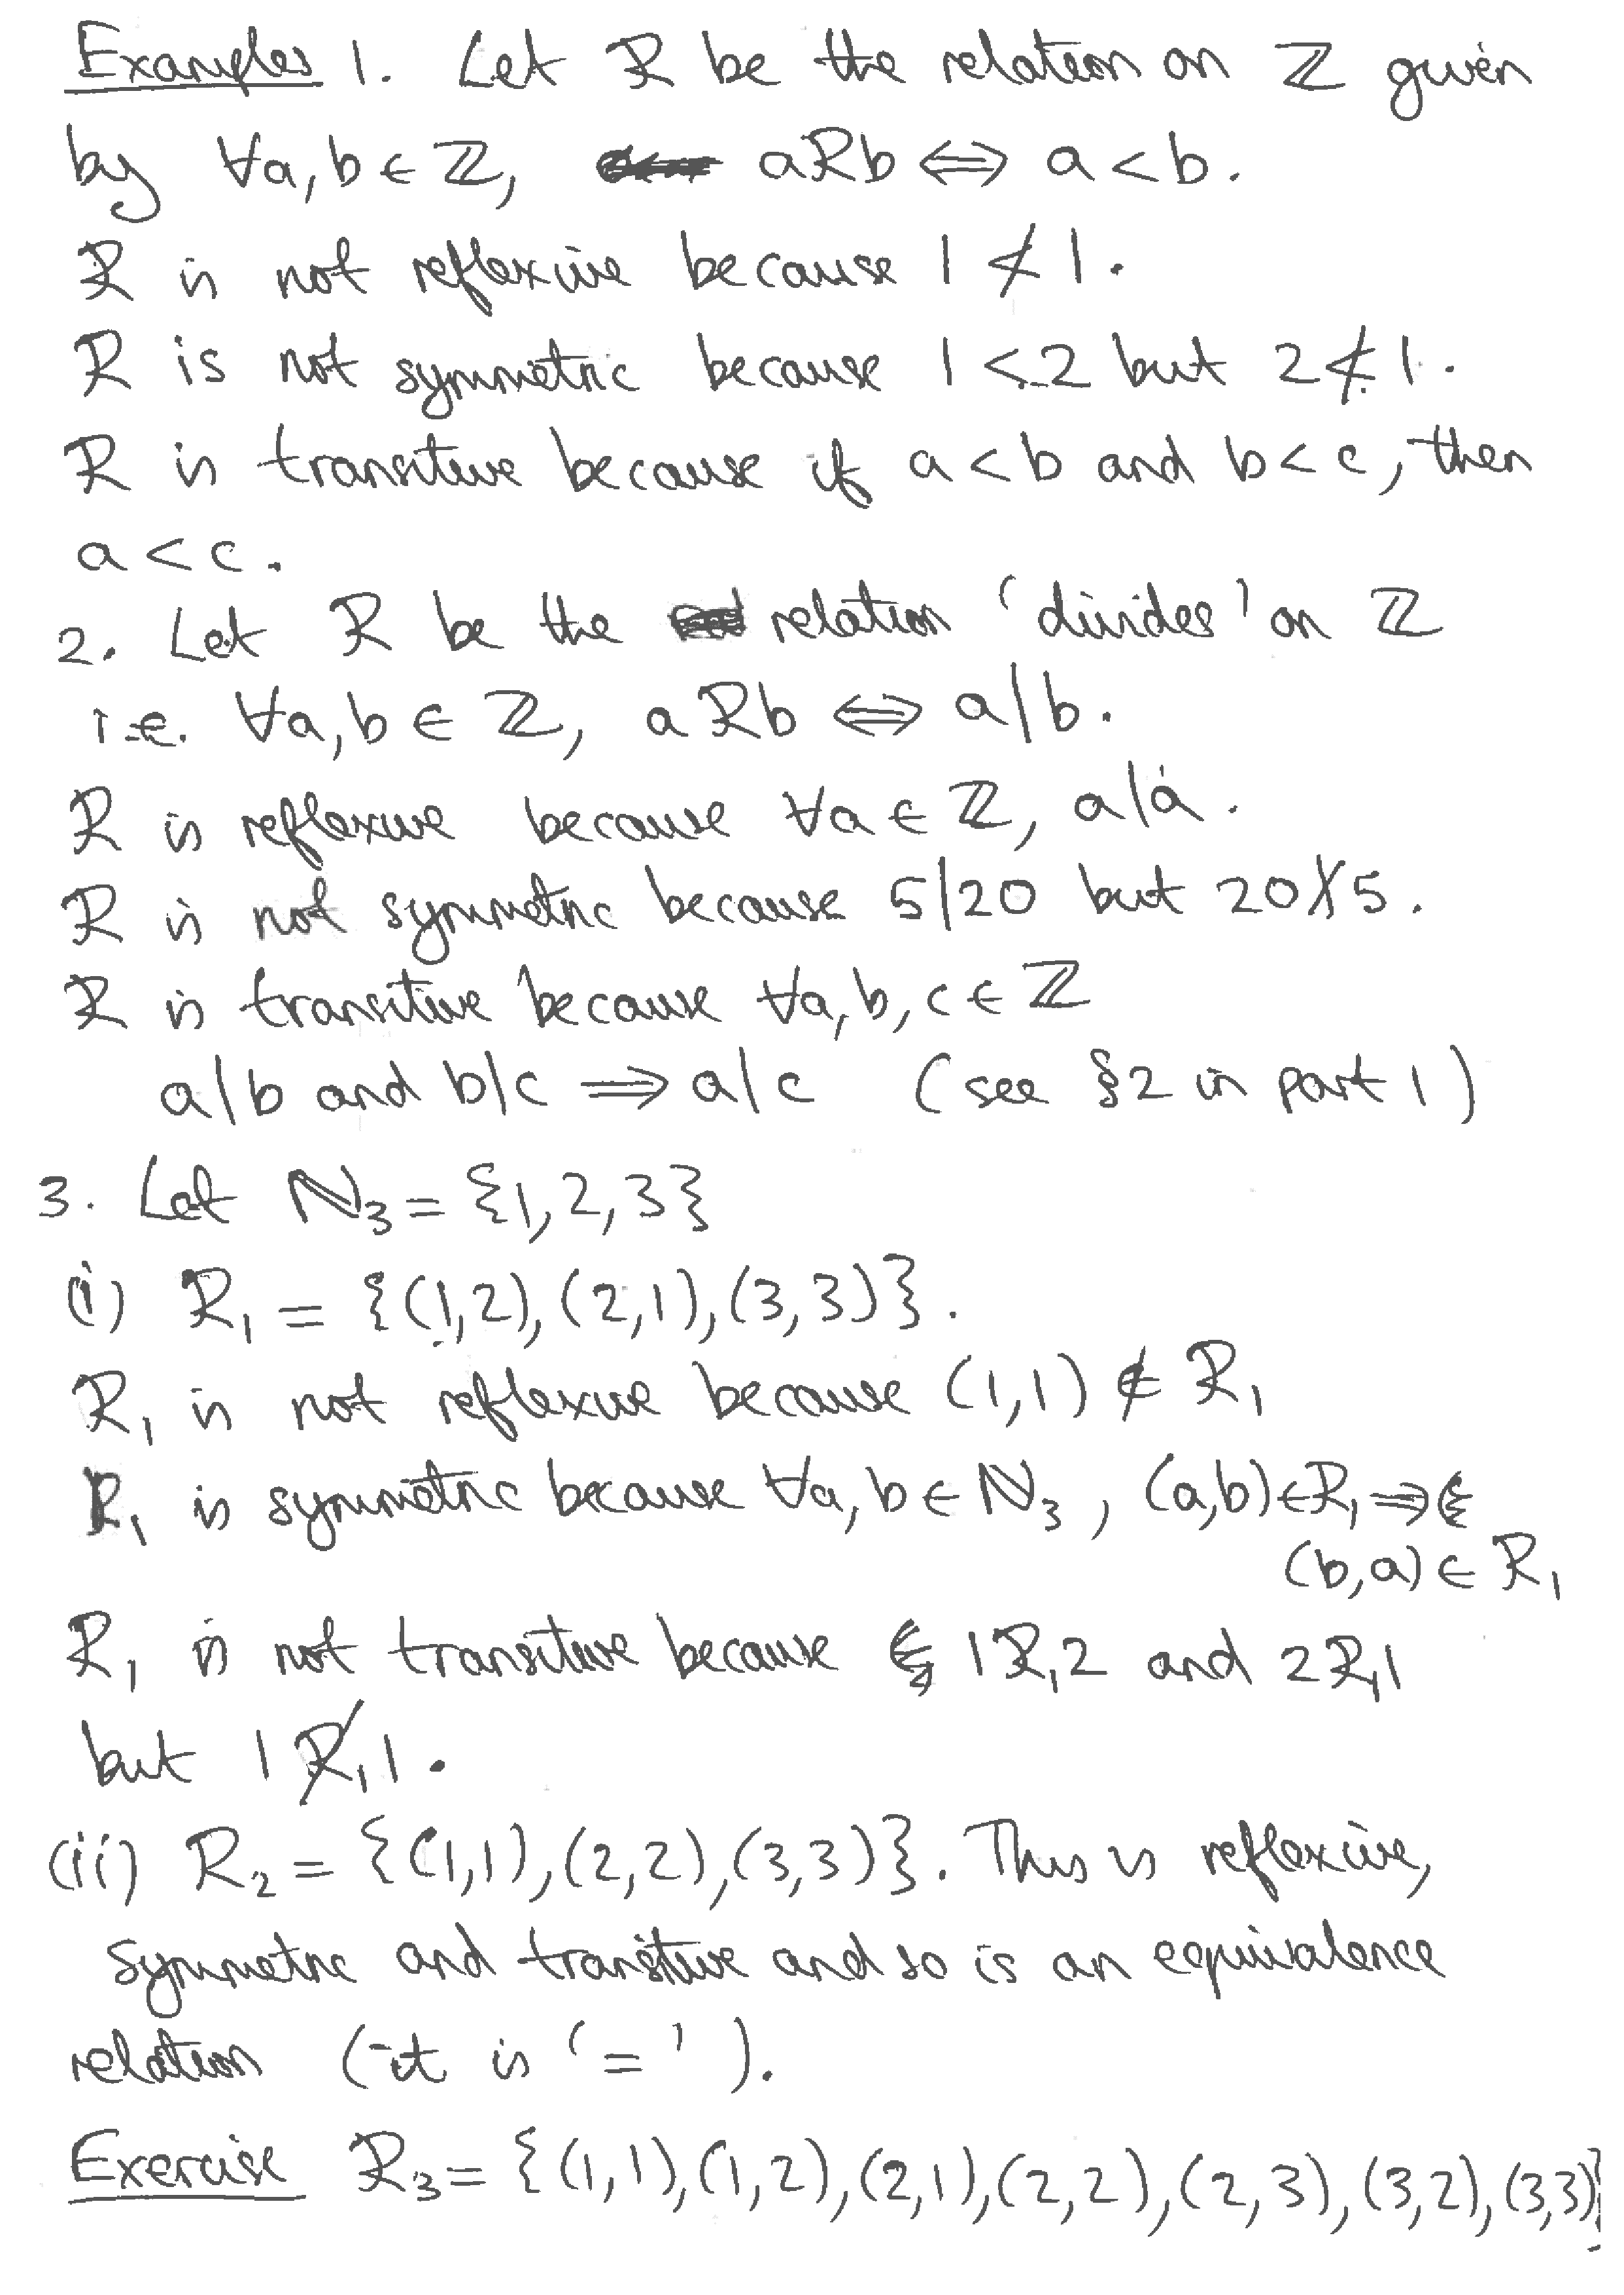 Examples 1. Let R be the relation on ℤ given
by ∀a, b ∈ ℤ, aRb ⟺ a < b.
R is not reflexive because 1 ≮ 1.
R is not symmetric because 1 < 2 but 2 ≮ 1.
R is transitive because if a < b and b < c, then
a < c.
2. Let R be the relation 'divides' on ℤ
i.e. ∀a, b ∈ ℤ, aRb ⟺ a|b.
R is reflexive because ∀a ∈ ℤ, a|a.
R is not symmetric because 5|20 but 20∤5.
R is transitive because ∀a, b, c ∈ ℤ
a|b and b|c ⟹ a|c (see §2 in part 1)
3. Let ℕ₃ = {1, 2, 3}
(i) R₁ = {(1,2), (2,1), (3,3)}.
R₁ is not reflexive because (1,1) ∉ R₁
R₁ is symmetric because ∀a, b ∈ ℕ₃, (a,b) ∈ R₁ ⟹
(b,a) ∈ R₁
R₁ is not transitive because 1R₁2 and 2R₁1
but 1R̸₁1.
(ii) R₂ = {(1,1), (2,2), (3,3)}. This is reflexive,
symmetric and transitive and so is an equivalence
relation (-it is '=').
Exercise R₃ = {(1,1), (1,2), (2,1), (2,2), (2,3), (3,2), (3,3)}